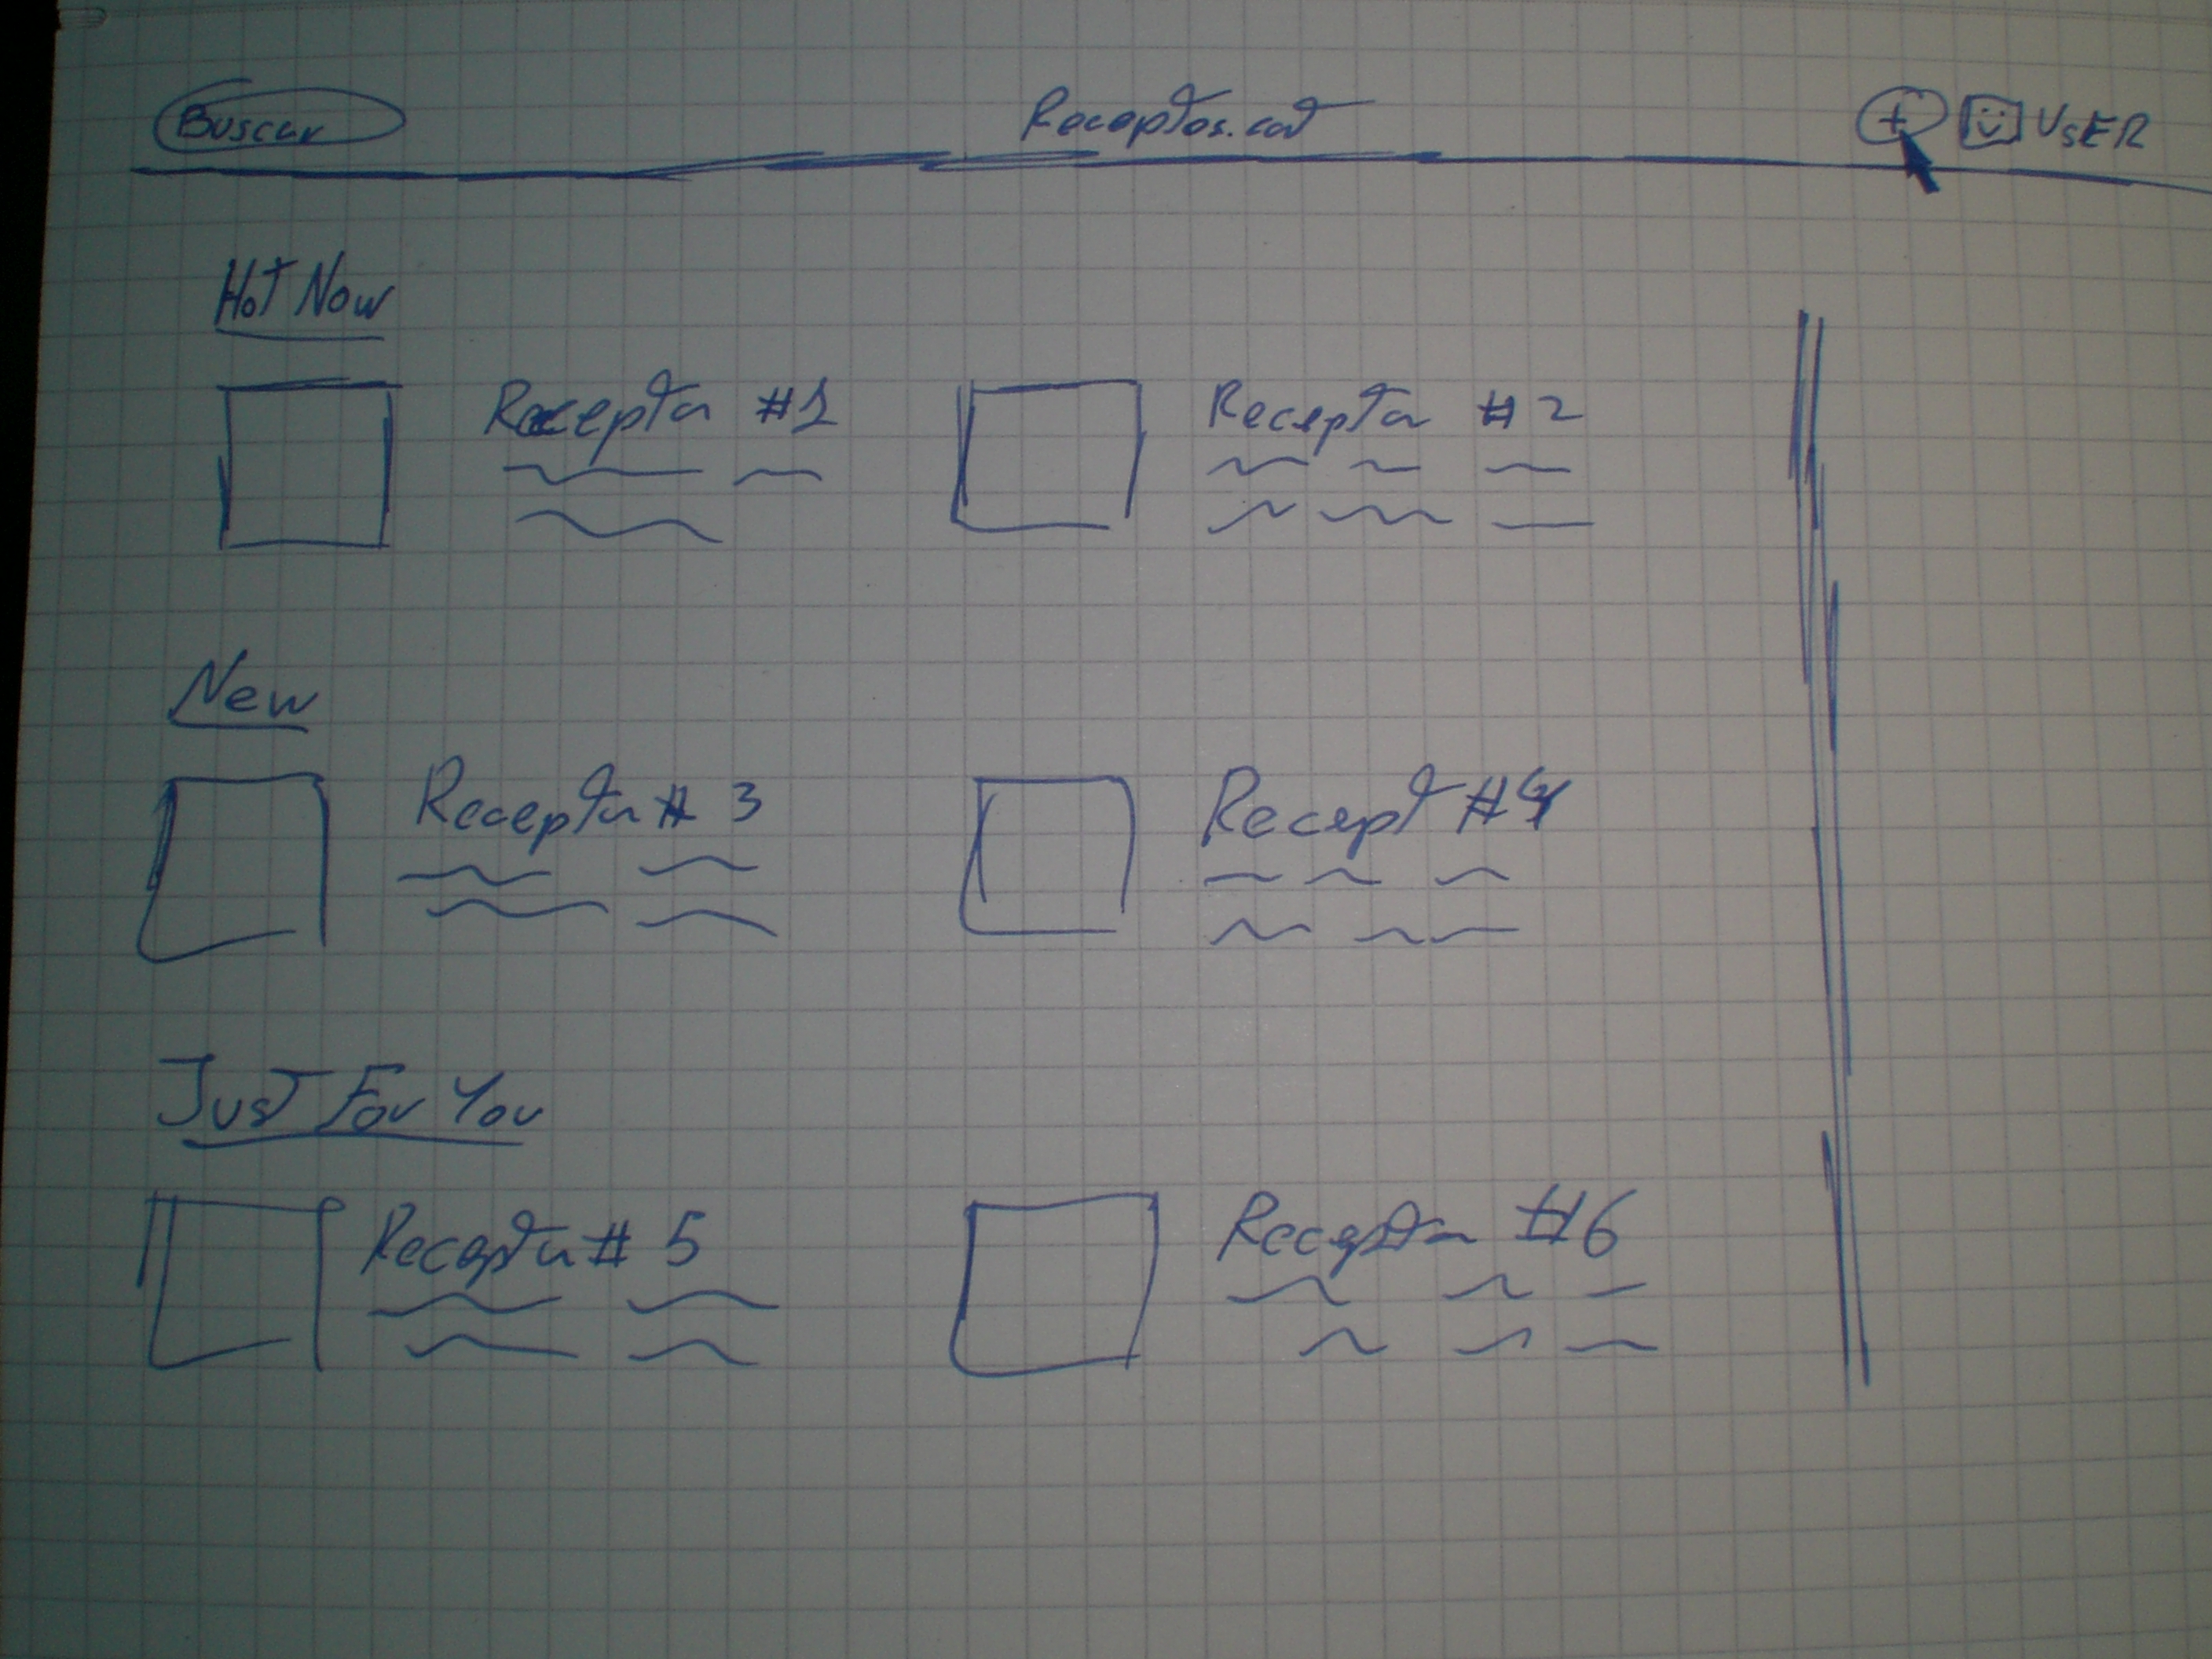 Buscar Receptes.cat + USER
Hot Now
Recepta #1 Recepta #2
New
Recepta # 3 Recept #4
Just For You
Recepta # 5 Recepta #6